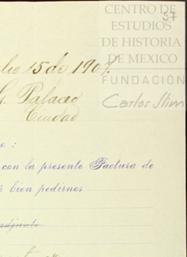 CENTRO DE
ESTUDIOS
DE HISTORIA
DE MEXICO
FUNDACIÓN
Carlos Slim
37
lio 15 de 1907.
Palacio
Ciudad
con la presente Factura de
bien pedirnos